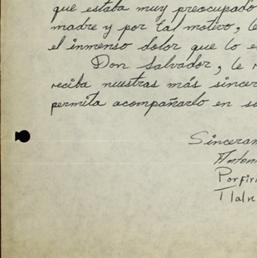 que estaba muy preocupado
madre y por tal motivo, le
el inmenso dolor que lo e
Don Salvador, le r
reciba nuestras más sincer
permita acompañarlo en su
Sinceram
Antoni
Porfiri
Tlaln